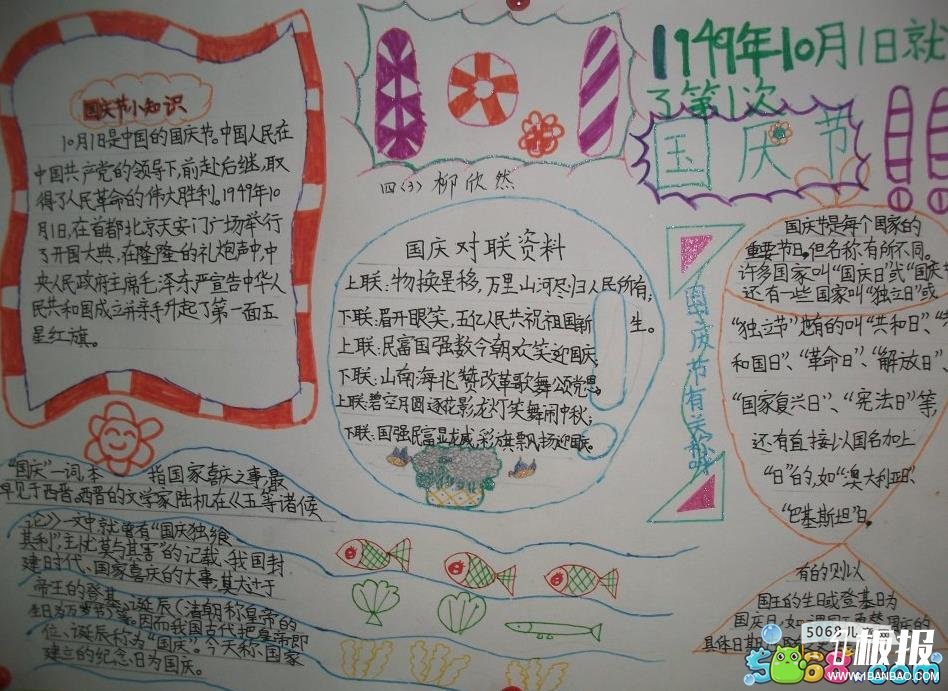 国庆节小知识
10月1日是中国的国庆节。中国人民在
中国共产党的领导下,前赴后继,取
得了人民革命的伟大胜利。1949年10
月1日,在首都北京天安门广场举行
了开国大典,在隆隆的礼炮声中,中
央人民政府主席毛泽东严宣告中华人
民共和国成立并亲手升起了第一面五
星红旗。
四(3)柳欣然
1949年10月1日就
了第1次
国庆节
国庆对联资料
上联:物换星移,万里山河尽归人民所有;
下联:眉开眼笑,五亿人民共祝祖国新生。
上联:民富国强数今朝欢笑迎国庆
下联:山南海北赞改革歌舞颂党恩
上联碧空月圆逐花影龙灯笑舞闹中秋;
下联:国强民富显龙威,彩旗飘扬迎
国庆节有关称呼
国庆节是每个国家的
重要节日,但名称有所不同。
许多国家叫“国庆日”或“国庆
还有一些国家叫“独立日”或
“独立节”也有的叫“共和日”、
和国日”、“革命日”、“解放日”、
“国家复兴日”、“宪法日”等,
还有直接以国名加上
“日”的,如“澳大利亚日”、
“巴基斯坦日”。
有的则以
国王的生日或登基日为
国庆日,如
具体日期
“国庆”一词,本 指国家喜庆之事,最
早见于西晋。西晋的文学家陆机在《五等诸候
论》一文中就曾有“国庆独飨
其利,主忧莫与其害”的记载、我国封
建时代、国家喜庆的大事,莫大过于
帝王的登基、诞辰(清朝称皇帝的
生日为万岁节)等。因而我国古代把皇帝即
位、诞辰称为“国庆”。今天称国家
建立的纪念日为国庆。
5068儿
5068.com
板报
WWW.1BANBAO.COM